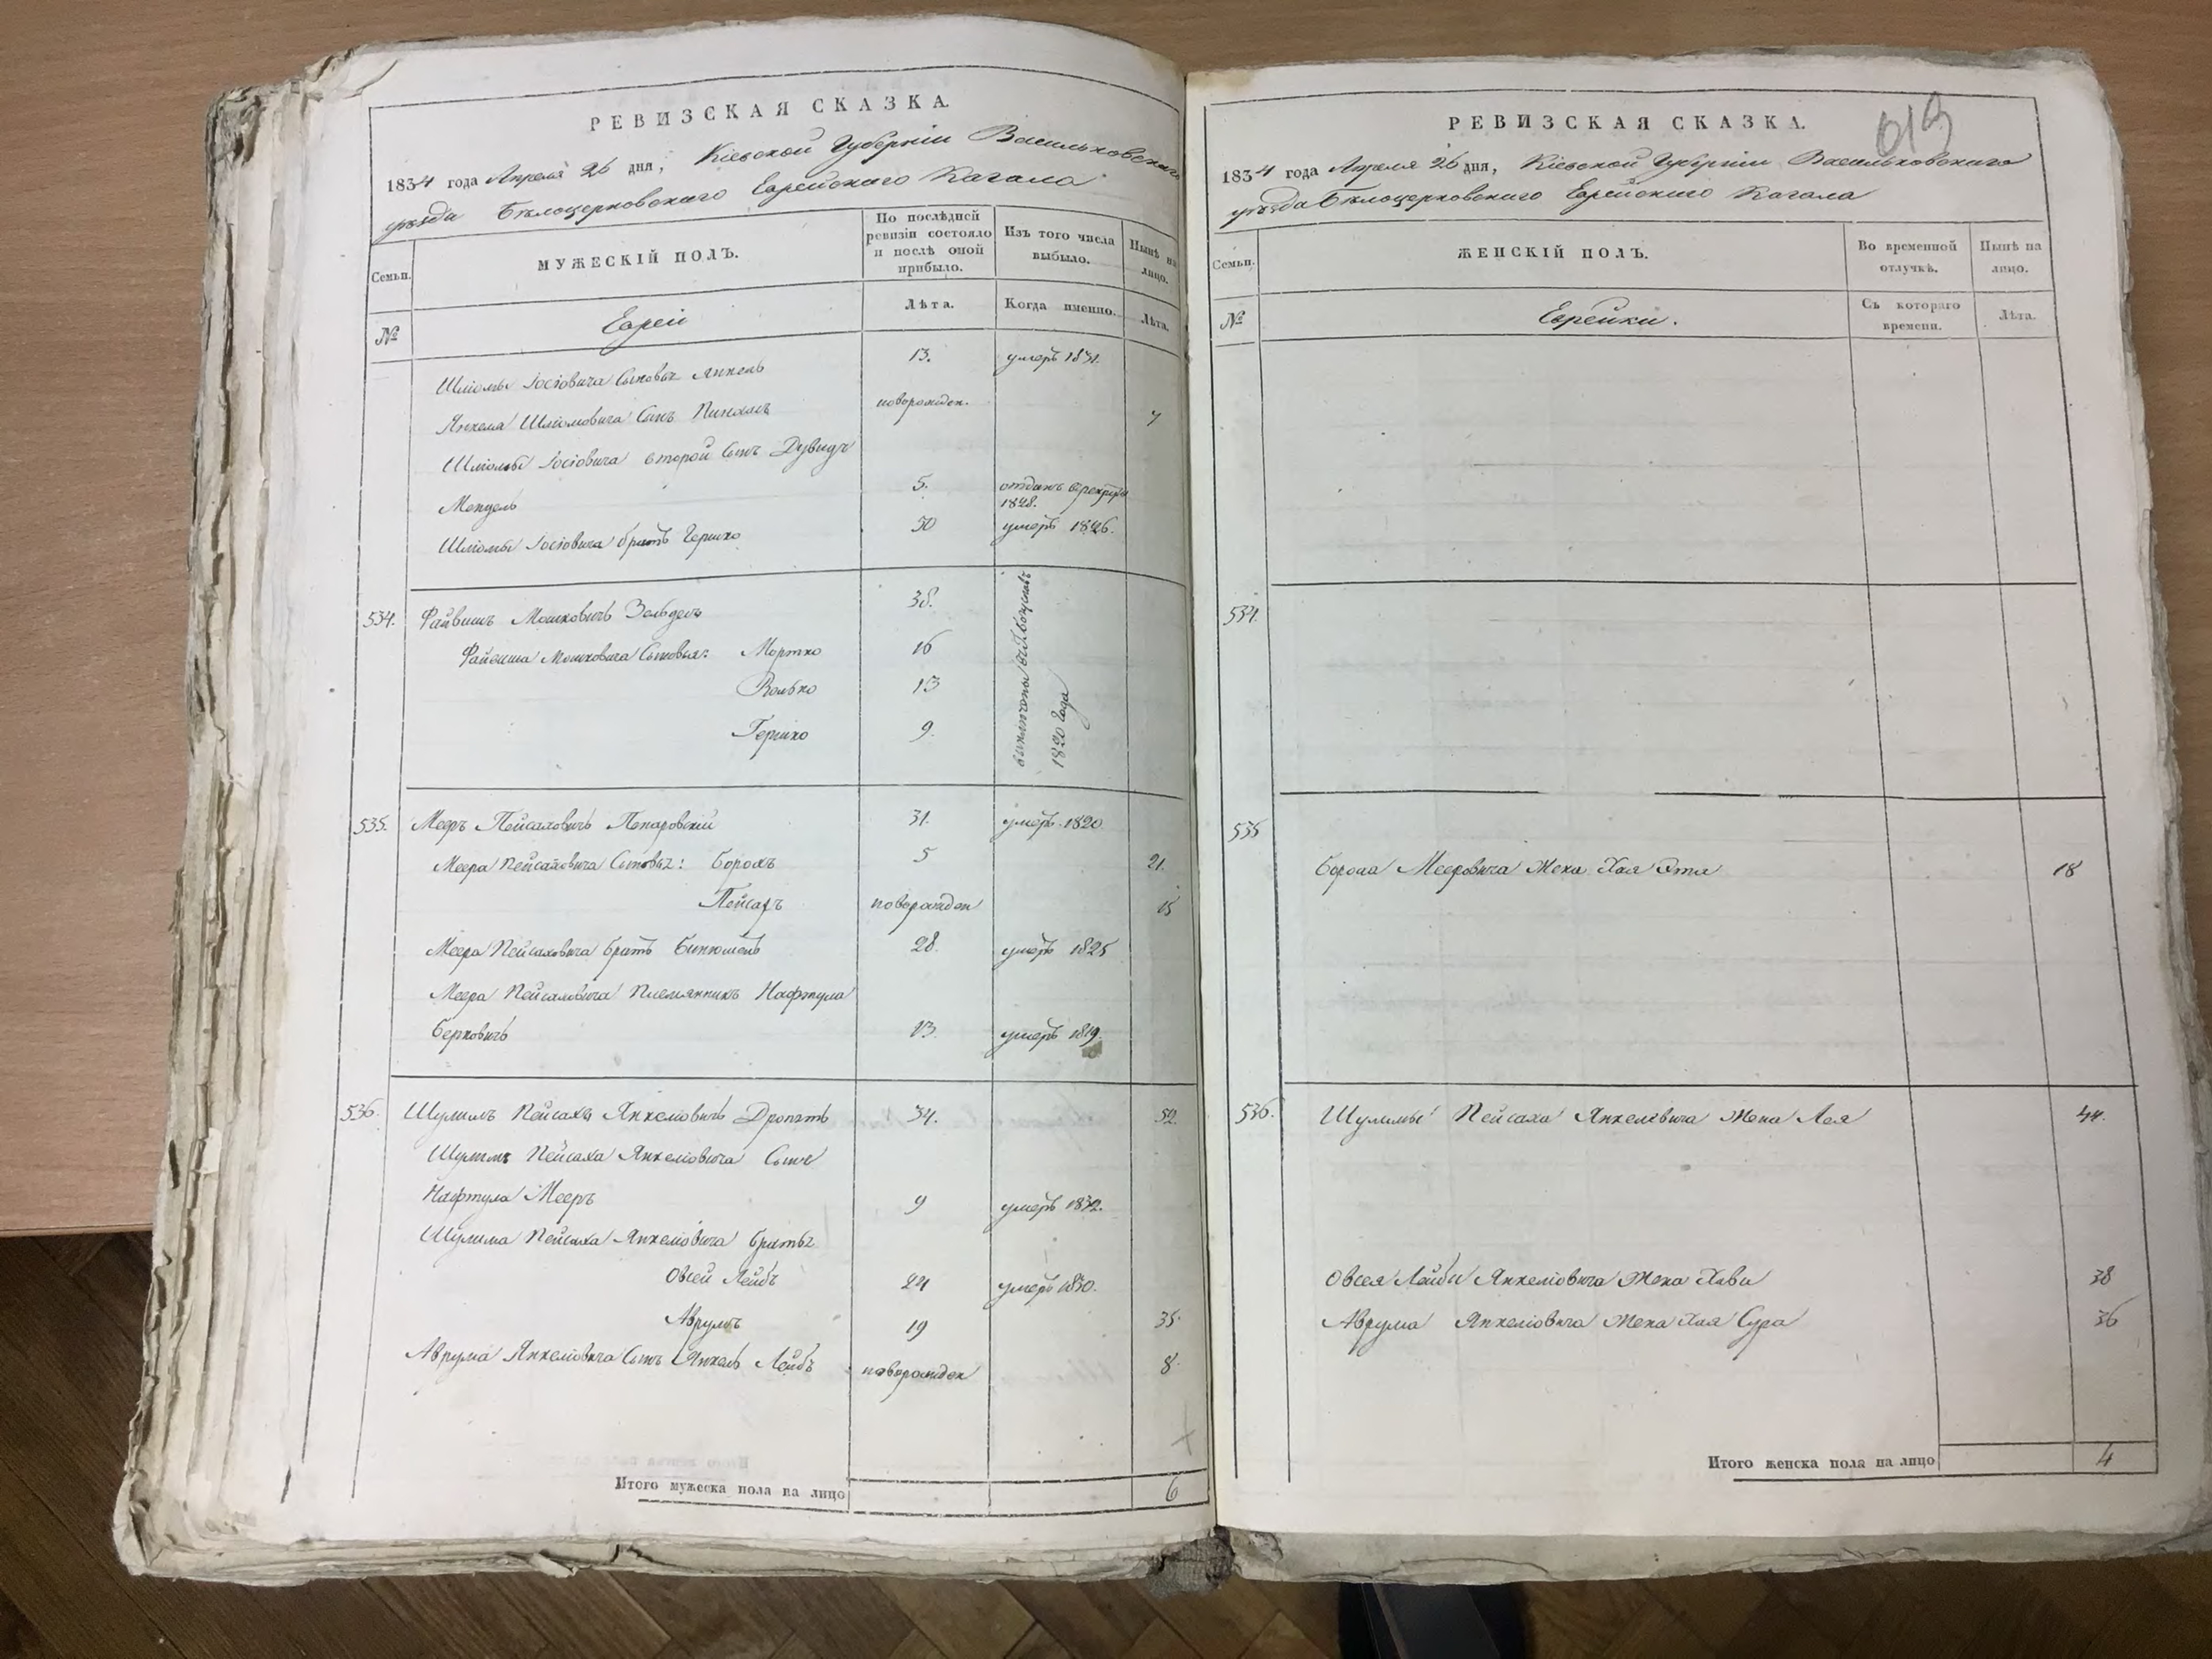 РЕВИЗСКАЯ СКАЗКА.
1834 года Апреля 26 дня, Кіевской Губерніи Васильковскаго
уѣзда Бѣлоцерковскаго Еврейскаго Кагала
Семьи.
МУЖЕСКІЙ ПОЛЪ.
По послѣдней ревизіи состояло и послѣ оной прибыло.
Изъ того числа выбыло.
Нынѣ на лицо.
№
Еврей
Лѣта.
Когда именно.
Лѣта.
Шліомы Іосіовича Сыновья Янкель 13. умеръ 1831.
Янкеля Шліомовича Сынъ Пинхасъ новорожден. 7
Шліомы Іосіовича второй Сынъ Дувидъ
Мендель 5. отданъ в рекруты 1828.
Шліомы Іосіовича братъ Гершко 30 умеръ 1826.
534. Файвишъ Мошковичъ 38.
Файвиша Мошковича Сыновья: Мортко 16
Волько 13
Гершко 9.
1820 года
535. Мееръ Пейсаховичъ 31. умеръ 1820
Меера Пейсаховича Сыновья: Борохъ 5 21.
Пейсахъ новорожден 15
Меера Пейсаховича братъ 28. умеръ 1825
Меера Пейсаховича Племянникъ Нафтула
Берковичъ 13. умеръ 1819.
536. Шулимъ Пейсахъ Янкеліовичъ 34. 52.
Шулима Пейсаха Янкеліовича Сынъ
Нафтула Мееръ 9 умеръ 1832.
Шулима Пейсаха Янкеліовича братья
Овсей Лейбъ 24 умеръ 1830.
Аврумъ 19 35.
Аврума Янкеліовича Сынъ Янкель Лейбъ новорожден 8.
Итого мужеска пола на лицо 6
РЕВИЗСКАЯ СКАЗКА.
613
1834 года Апреля 26 дня, Кіевской Губерніи Васильковскаго
уѣзда Бѣлоцерковскаго Еврейскаго Кагала
Семьи.
ЖЕНСКІЙ ПОЛЪ.
Во временной отлучкѣ.
Нынѣ на лицо.
№
Еврейки.
Съ котораго времени.
Лѣта.
534.
535
Бороха Мееровича Жена Хая Этя 18
536. Шулимы Пейсаха Янкелевича Жена Лея 44.
Овсея Лейбы Янкеліовича Жена Хава 38
Аврума Янкеліовича Жена Хая Сура 36
Итого женска пола на лицо 4